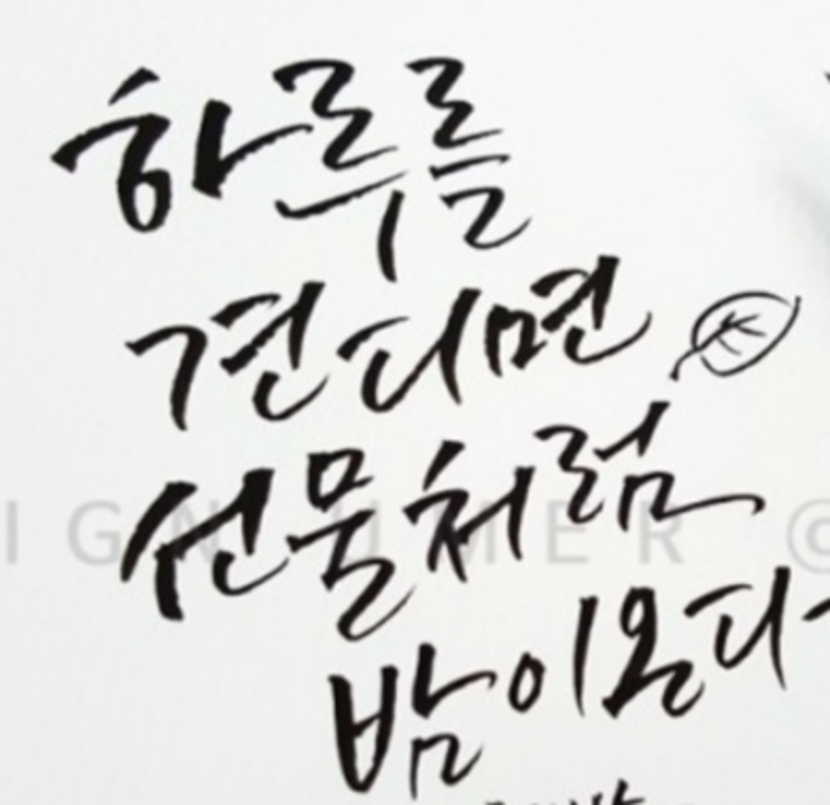 하루를
견디면
선물처럼
밤이 온다